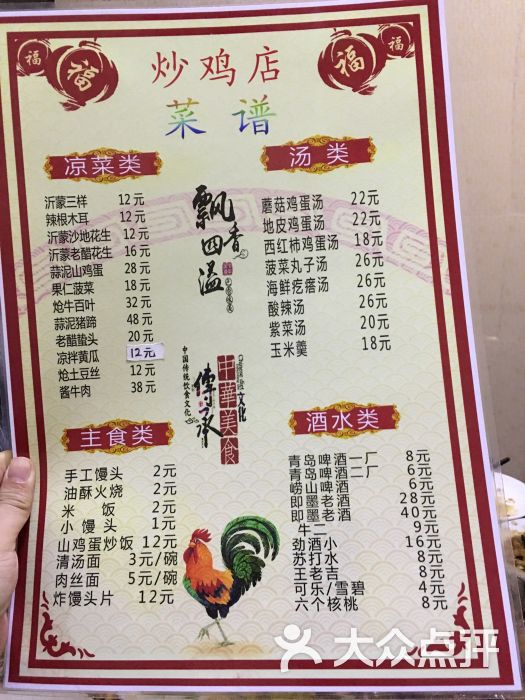 福
福
福
福
炒鸡店
菜谱
凉菜类
沂蒙三样 12元
辣根木耳 12元
沂蒙沙地花生 12元
沂蒙老醋花生 16元
蒜泥山鸡蛋 28元
果仁菠菜 18元
炝牛百叶 32元
蒜泥猪蹄 48元
老醋蛰头 20元
凉拌黄瓜 12元
炝土豆丝 12元
酱牛肉 38元
飘香四溢
汤类
蘑菇鸡蛋汤 22元
地皮鸡蛋汤 22元
西红柿鸡蛋汤 18元
菠菜丸子汤 26元
海鲜疙瘩汤 26元
酸辣汤 26元
紫菜汤 20元
玉米羹 18元
中国传统饮食文化
传承
中华美食
文化
主食类
手工馒头 2元
油酥火烧 2元
米饭 2元
小馒头 1元
山鸡蛋炒饭 12元
清汤面 3元/碗
肉丝面 5元/碗
炸馒头片 12元
酒水类
青岛啤酒一厂 8元
青岛啤酒二厂 6元
崂山啤酒 6元
即墨老酒 28元
即墨老酒 40元
牛二 9元
劲酒小 16元
苏打水 8元
王老吉 8元
可乐/雪碧 4元
六个核桃 8元
大众点评